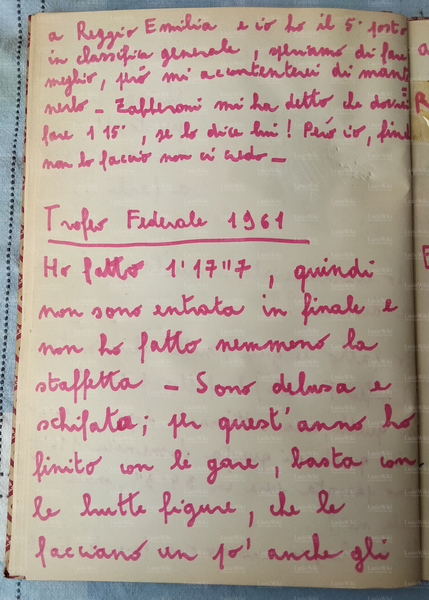 a Reggio Emilia e io ho il 5° posto
in classifica generale, speriamo di fare
meglio, però mi accontenterei di mant
nerlo - Zabberoni mi ha detto che dovrei
fare 1 15", se lo dice lui! Però io, finché
non lo faccio non ci credo -
Trofeo Federale 1961
Ho fatto 1' 17"7, quindi
non sono entrata in finale e
non ho fatto nemmeno la
staffetta - Sono delusa e
schifata; per quest'anno ho
finito con le gare, basta con
le brutte figure, che le
facciano un po' anche gli